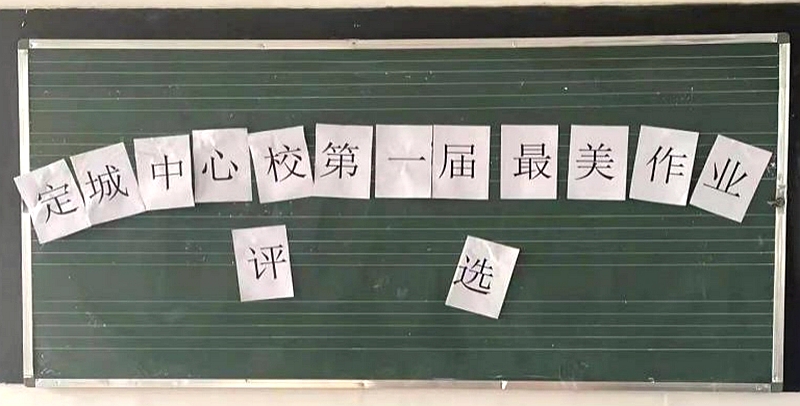 定城中心校第一届最美作业
评选